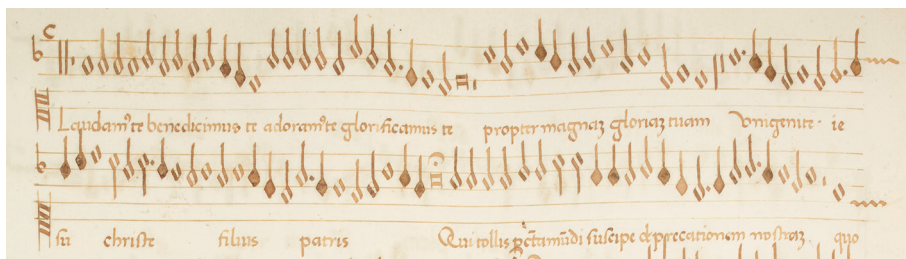 Laudam⁹te benedicimus te adoram⁹te glorificamus te propter magnaʒ gloriaʒ tuam Unigenite ie
su christe filius patris Qui tollis suscipe deprecationem nostraʒ quo